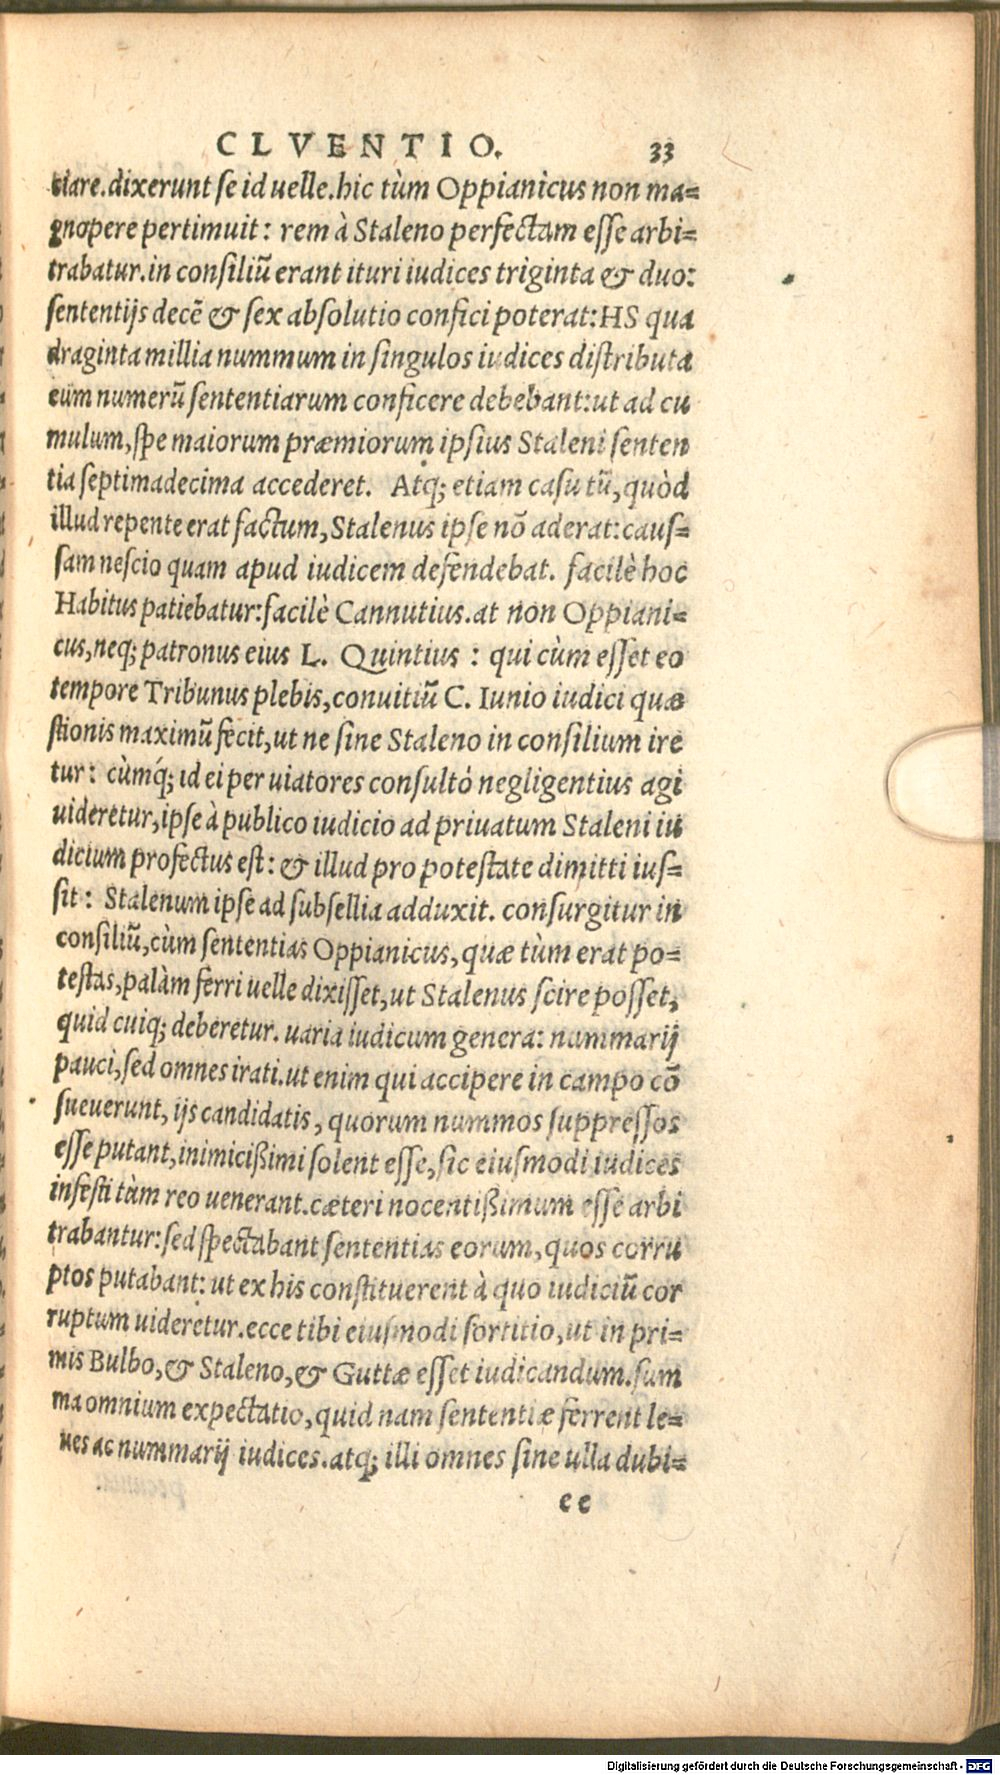 CLVENTIO. 33
tiare.dixerunt se id uelle.hic tùm Oppianicus non ma=
gnopere pertimuit: rem à Staleno perfectam esse arbi=
trabatur.in consiliũ erant ituri iudices triginta & duo:
sententijs decẽ & sex absolutio confici poterat:HS qua
draginta millia nummum in singulos iudices distributa
eum numerũ sententiarum conficere debebant:ut ad cu
mulum,spe maiorum præmiorum ipsius Staleni senten
tia septimadecima accederet. Atq; etiam casu tũ,quòd
illud repente erat factum,Stalenus ipse nõ aderat:caus=
sam nescio quam apud iudicem defendebat. facilè hoc
Habitus patiebatur:facilè Cannutius.at non Oppiani=
cus,neq; patronus eius L. Quintius : qui cùm esset eo
tempore Tribunus plebis,conuitiũ C. Iunio iudici quæ
stionis maximũ fecit,ut ne sine Staleno in consilium ire
tur: cùmq́; id ei per uiatores consultó negligentius agi
uideretur,ipse à publico iudicio ad priuatum Staleni iu
dicium profectus est: & illud pro potestate dimitti ius=
sit: Stalenum ipse ad subsellia adduxit. consurgitur in
consiliũ,cùm sententias Oppianicus,quæ tùm erat po=
testas,palàm ferri uelle dixisset,ut Stalenus scire posset,
quid cuiq; deberetur. uaria iudicum genera: nummarij
pauci,sed omnes irati.ut enim qui accipere in campo cõ
sueuerunt, ijs candidatis, quorum nummos suppressos
esse putant,inimicißimi solent esse,sic eiusmodi iudices
infesti tùm reo uenerant.cæteri nocentißimum esse arbi
trabantur:sed spectabant sententias eorum,quos corru
ptos putabant: ut ex his constituerent à quo iudiciũ cor
ruptum uideretur.ecce tibi eiusmodi sortitio,ut in pri=
mis Bulbo,& Staleno,& Guttæ esset iudicandum.sum
ma omnium expectatio,quid nam sententiæ ferrent le=
ues ac nummarij iudices.atq; illi omnes sine ulla dubi=
e e
Digitalisierung gefördert durch die Deutsche Forschungsgemeinschaft - DFG